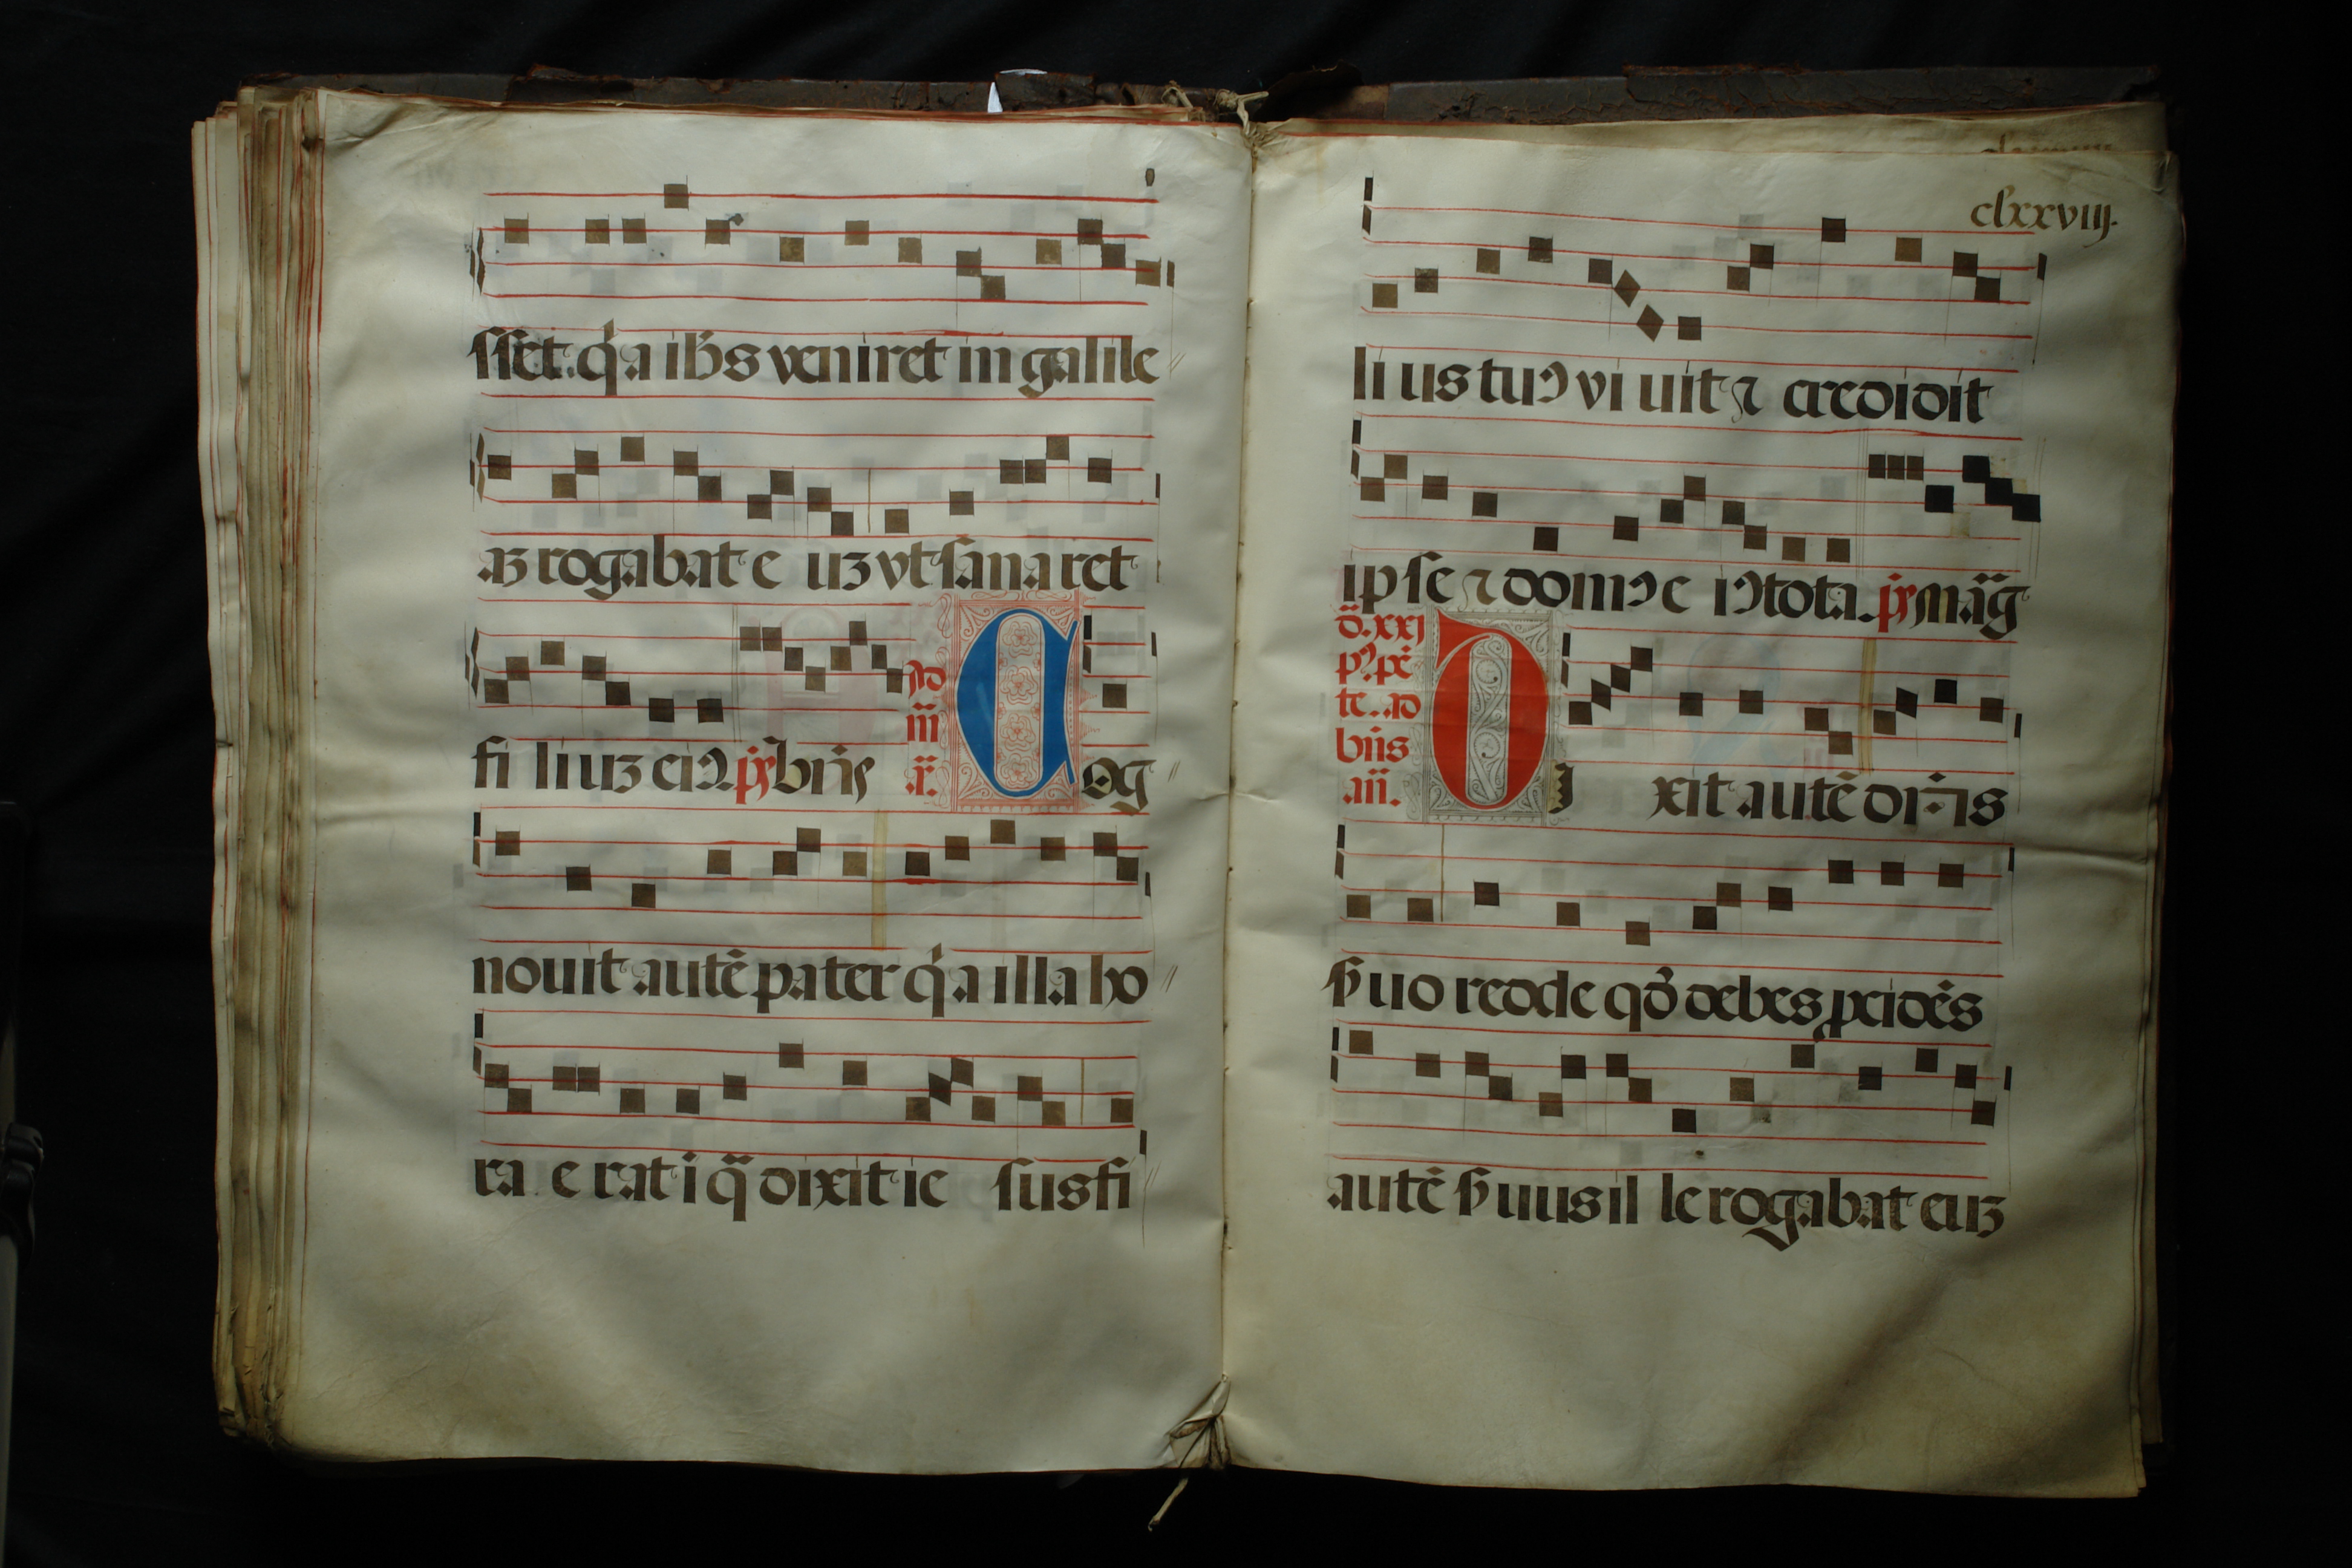 sset. q̇a ihs̄ veniret in galile
aꝫ rogabat e uꝫ vt sana ret
fi liuꝫ eiꝰ. ps̄ bn̄s
ad m̄ a.̄ C og
nouit autē pa ter q̇a illa ho
ra e rat i q̄ dixit ie sus fi
clxxviij.
li us tuꝰ vi uit ⁊ credidit
ip se ⁊ domꝰ e iꝰ tota. ps̄ māg
d.̄ xxj
p? pē
te. ad
bn̄s
an̄.
D i xit autē dn̄s
s̄uo redde qđ debes p̱cidēs
autē s̄uus il le rogabat euꝫ